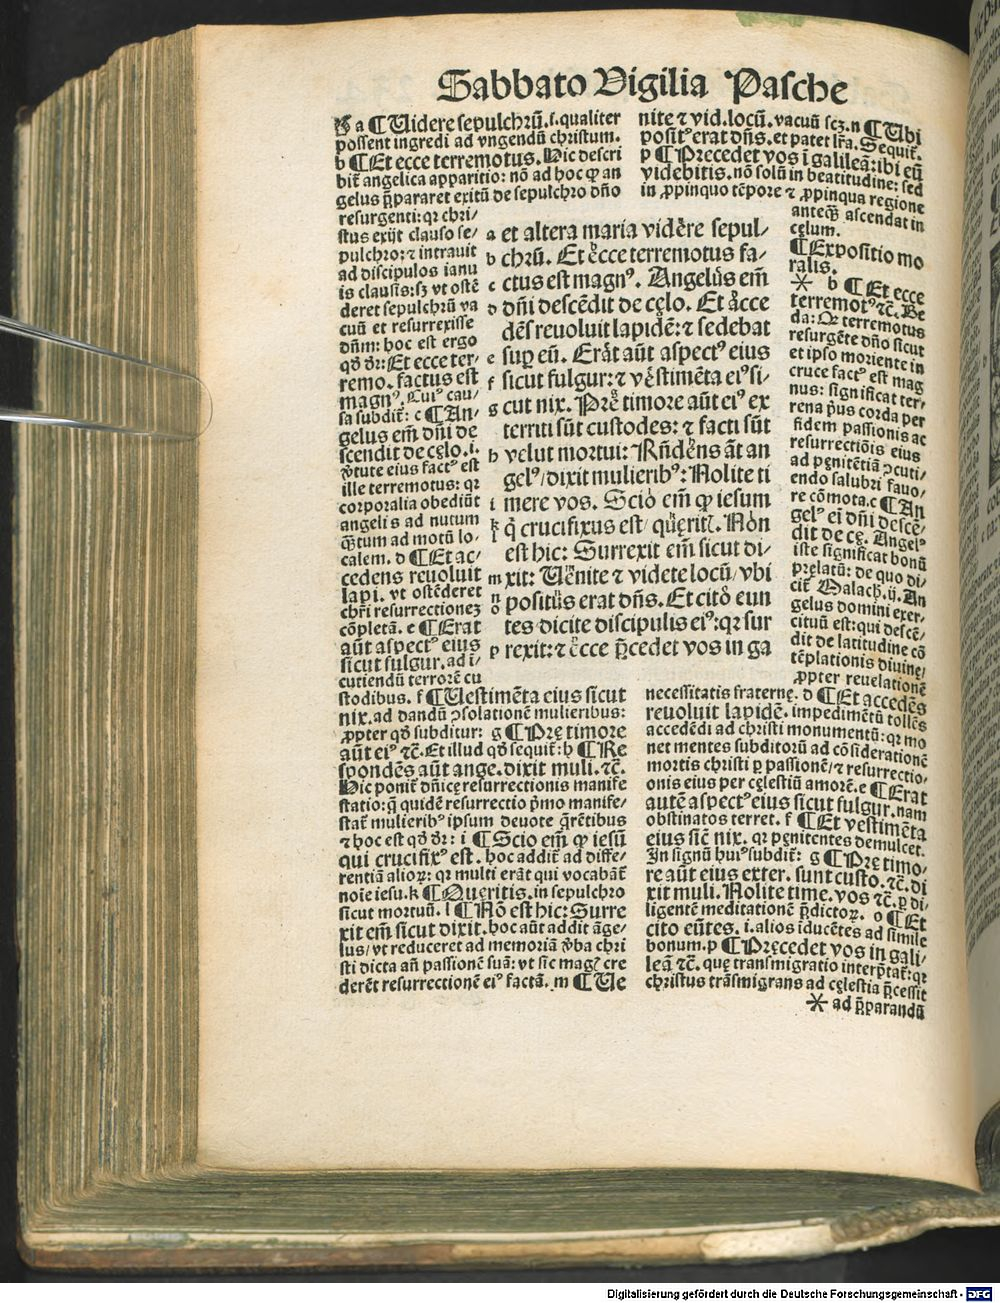 Sabbato Vigilia Pasche
a ¶ Uidere sepulchrū.i.qualiter
possent ingredi ad vngendū christum.
b ¶ Et ecce terremotus. Hic descri
bit̄ angelica apparitio: nō ad hoc ꝙ an
gelus p̄pararet exitū de sepulchro dn̄o
resurgenti: qꝛ chri/
stus exijt clauso se/
pulchro: ⁊ intrauit
ad discipulos ianu
is clausis: sꝫ vt ostē
deret sepulchrū va
cuū et resurrexisse
dn̄m: hoc est ergo
qd̄ dꝛ: Et ecce ter/
remo. factus est
magnꝰ. Cuiꝰ cau/
sa subdit̄: c ¶ An/
gelus em̄ dn̄i de
scendit de cęlo.i.
v̄tute eius factꝰ est
ille terremotus: qꝛ
corporalia obediūt
angelis ad nutum
qꝫtum ad motū lo/
calem. d ¶ Et ac/
cedens reuoluit
lapi. vt ostēderet
chr̄i resurrectioneꝫ
cōpletā. e ¶ Erat
aūt aspectꝰ eius
sicut fulgur. ad i/
cutiendū terrorē cu
stodibus. f ¶ Uestimēta eius sicut
nix. ad dandū ꝯsolationē mulieribus:
ꝓpter qd̄ subditur: g ¶ Prę timore
aūt eiꝰ ⁊c. Et illud qd̄ sequit̄: h ¶ Re
spondēs aūt ange. dixit muli. ⁊c.
Hic ponit̄ dn̄icę resurrectionis manife
statio: q̄ quidē resurrectio p̄mo manife/
stat̄ mulieribꝰ ipsum deuote q̄rētibus
⁊ hoc est qd̄ dꝛ: i ¶ Scio em̄ ꝙ iesū
qui crucifixꝰ est. hoc addit̄ ad diffe/
rentiā alioꝝ: qꝛ multi erāt qui vocabāt̄
noīe iesu. k ¶ Queritis. in sepulchro
sicut mortuū. l ¶ Nō est hic: Surre
xit em̄ sicut dixit. hoc aūt addit āge/
lus/ vt reduceret ad memoriā v̄ba chri
sti dicta an̄ passionē suā: vt sic magꝭ cre
derēt resurrectionē eiꝰ factā. m ¶ Ue
a et altera maria vidēre sepul/
b chrū. Et ecce terremotus fa/
c ctus est magnꝰ. Angelus em̄
d dn̄i descēdit de cęlo. Et acce
dēs reuoluit lapidē: ⁊ sedebat
e suꝑ eū. Erat aūt aspectꝰ eius
f sicut fulgur: ⁊ vestimēta eiꝰ si/
g cut nix. Prę timore aūt eiꝰ ex
territi sūt custodes: ⁊ facti sūt
h velut mortui: Rn̄dens āt an
gelꝰ/ dixit mulieribꝰ: Nolite ti
i mere vos. Scio em̄ ꝙ iesum
k q̄ crucifixus est/ quęritꝭ. Non
l est hic: Surrexit em̄ sicut di/
m xit: Uenite ⁊ videte locū/ vbi
n positus erat dn̄s. Et cito eun
o tes/ dicite discipulis eiꝰ: qꝛ sur
p rexit: ⁊ ecce p̄cedet vos in ga
nite ⁊ vid. locū. vacuū scꝫ. n ¶ Ubi
positꝰ erat dn̄s. et patet lr̄a. Sequit̄.
p ¶ Precedet vos ī galileā: ibi eū
videbitis. nō solū in beatitudine: sed
in ꝓpinquo tēpore ⁊ ꝓpinqua regione
anteqꝫ ascendat in
cęlum.
¶ Expositio mo
ralis.
* b ¶ Et ecce
terremotꝰ ⁊c. Be
da: Qꝛ terremotus
resurgēte dn̄o sicut
et ipso moriente in
cruce factꝰ est mag
nus: significat ter/
rena p̄us corda per
fidem passionis ac
resurrectiōis eius
ad pęnitētiā ꝯcuti/
endo salubri fauo/
re cōmota. c ¶ An
gelꝰ ei dn̄i descē/
dit de cę. Angelꝰ
iste significat bonū
pręlatū: de quo di/
cit̄ Malach.ij. An
gelus domini exer/
cituū est: qui descē/
dit de latitudine cō
tēplationis diuinę/
ꝓpter reuelationē
necessitatis fraternę. d ¶ Et accedēs
reuoluit lapidē. impedimētū tollēs
accedēdi ad christi monumentū: qꝛ mo
net mentes subditorū ad cōsiderationē
mortis christi ꝑ passionē/ ⁊ resurrectio/
onis eius per cęlestiū amorē. e ¶ Erat
autē aspectꝰ eius sicut fulgur. nam
obstinatos terret. f ¶ Et vestimēta
eius sic̄ nix. qꝛ pęnitentes demulcet.
In signū huiꝰ subdit̄: g ¶ Prę timo/
re aūt eius exter. sunt custo. ⁊c. di
xit muli. Nolite time. vos ⁊c. ꝑ di/
ligentē meditationē p̄dictoꝝ. o ¶ Et
cito eūtes.i. alios iducētes ad simile
bonum. p ¶ Pręcedet vos in gali/
leā ⁊c. quę transmigratio interp̄tat̄: qꝛ
christus trāsmigrans ad cęlestia p̄cessit
* ad p̄parandū
Digitalisierung gefördert durch die Deutsche Forschungsgemeinschaft - DFG